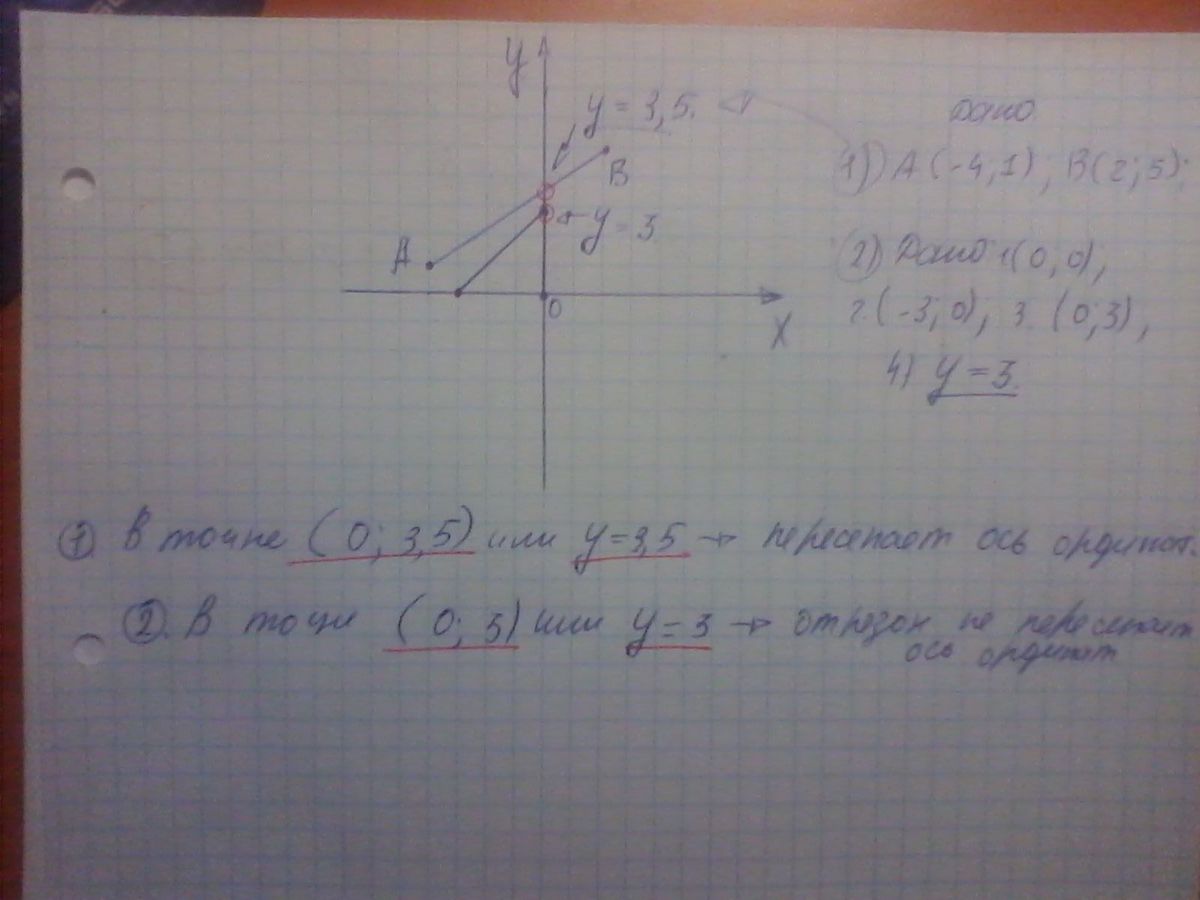 y
y = 3,5.
Дано
1) A (-4,1), B(2;5);
B
y = 3
A
2) Дано 1(0,0),
2.(-3;0), 3. (0;3),
0
X
4) y = 3.
1 В точке (0; 3,5) или y=3,5 → пересекает ось ординат.
2. В точце (0; 3) или y = 3 → отрезок не пересекает
ось ординат